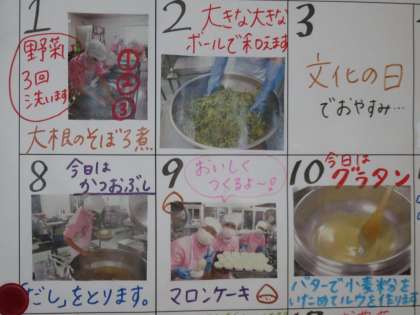 1
野菜
3回
洗います
①
②
③
大根のそぼろ煮
2
大きな大きな
ボールで和えます
3
文化の日
でおやすみ…
8
今日は
かつおぶし
「だし」をとります。
9
おいしく
つくるよ〜♡
マロンケーキ
10
今日は
グラタン
バターで小麦粉を
いためてルウを作ります